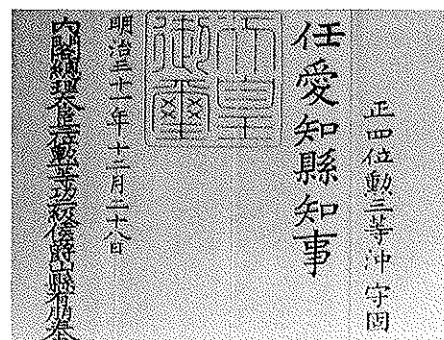 正四位勳三等沖守固
任愛知縣知事
天皇
御璽
明治三十一年十二月二十八日
内閣總理大臣正二位勳一等功二級侯爵山縣有朋奉